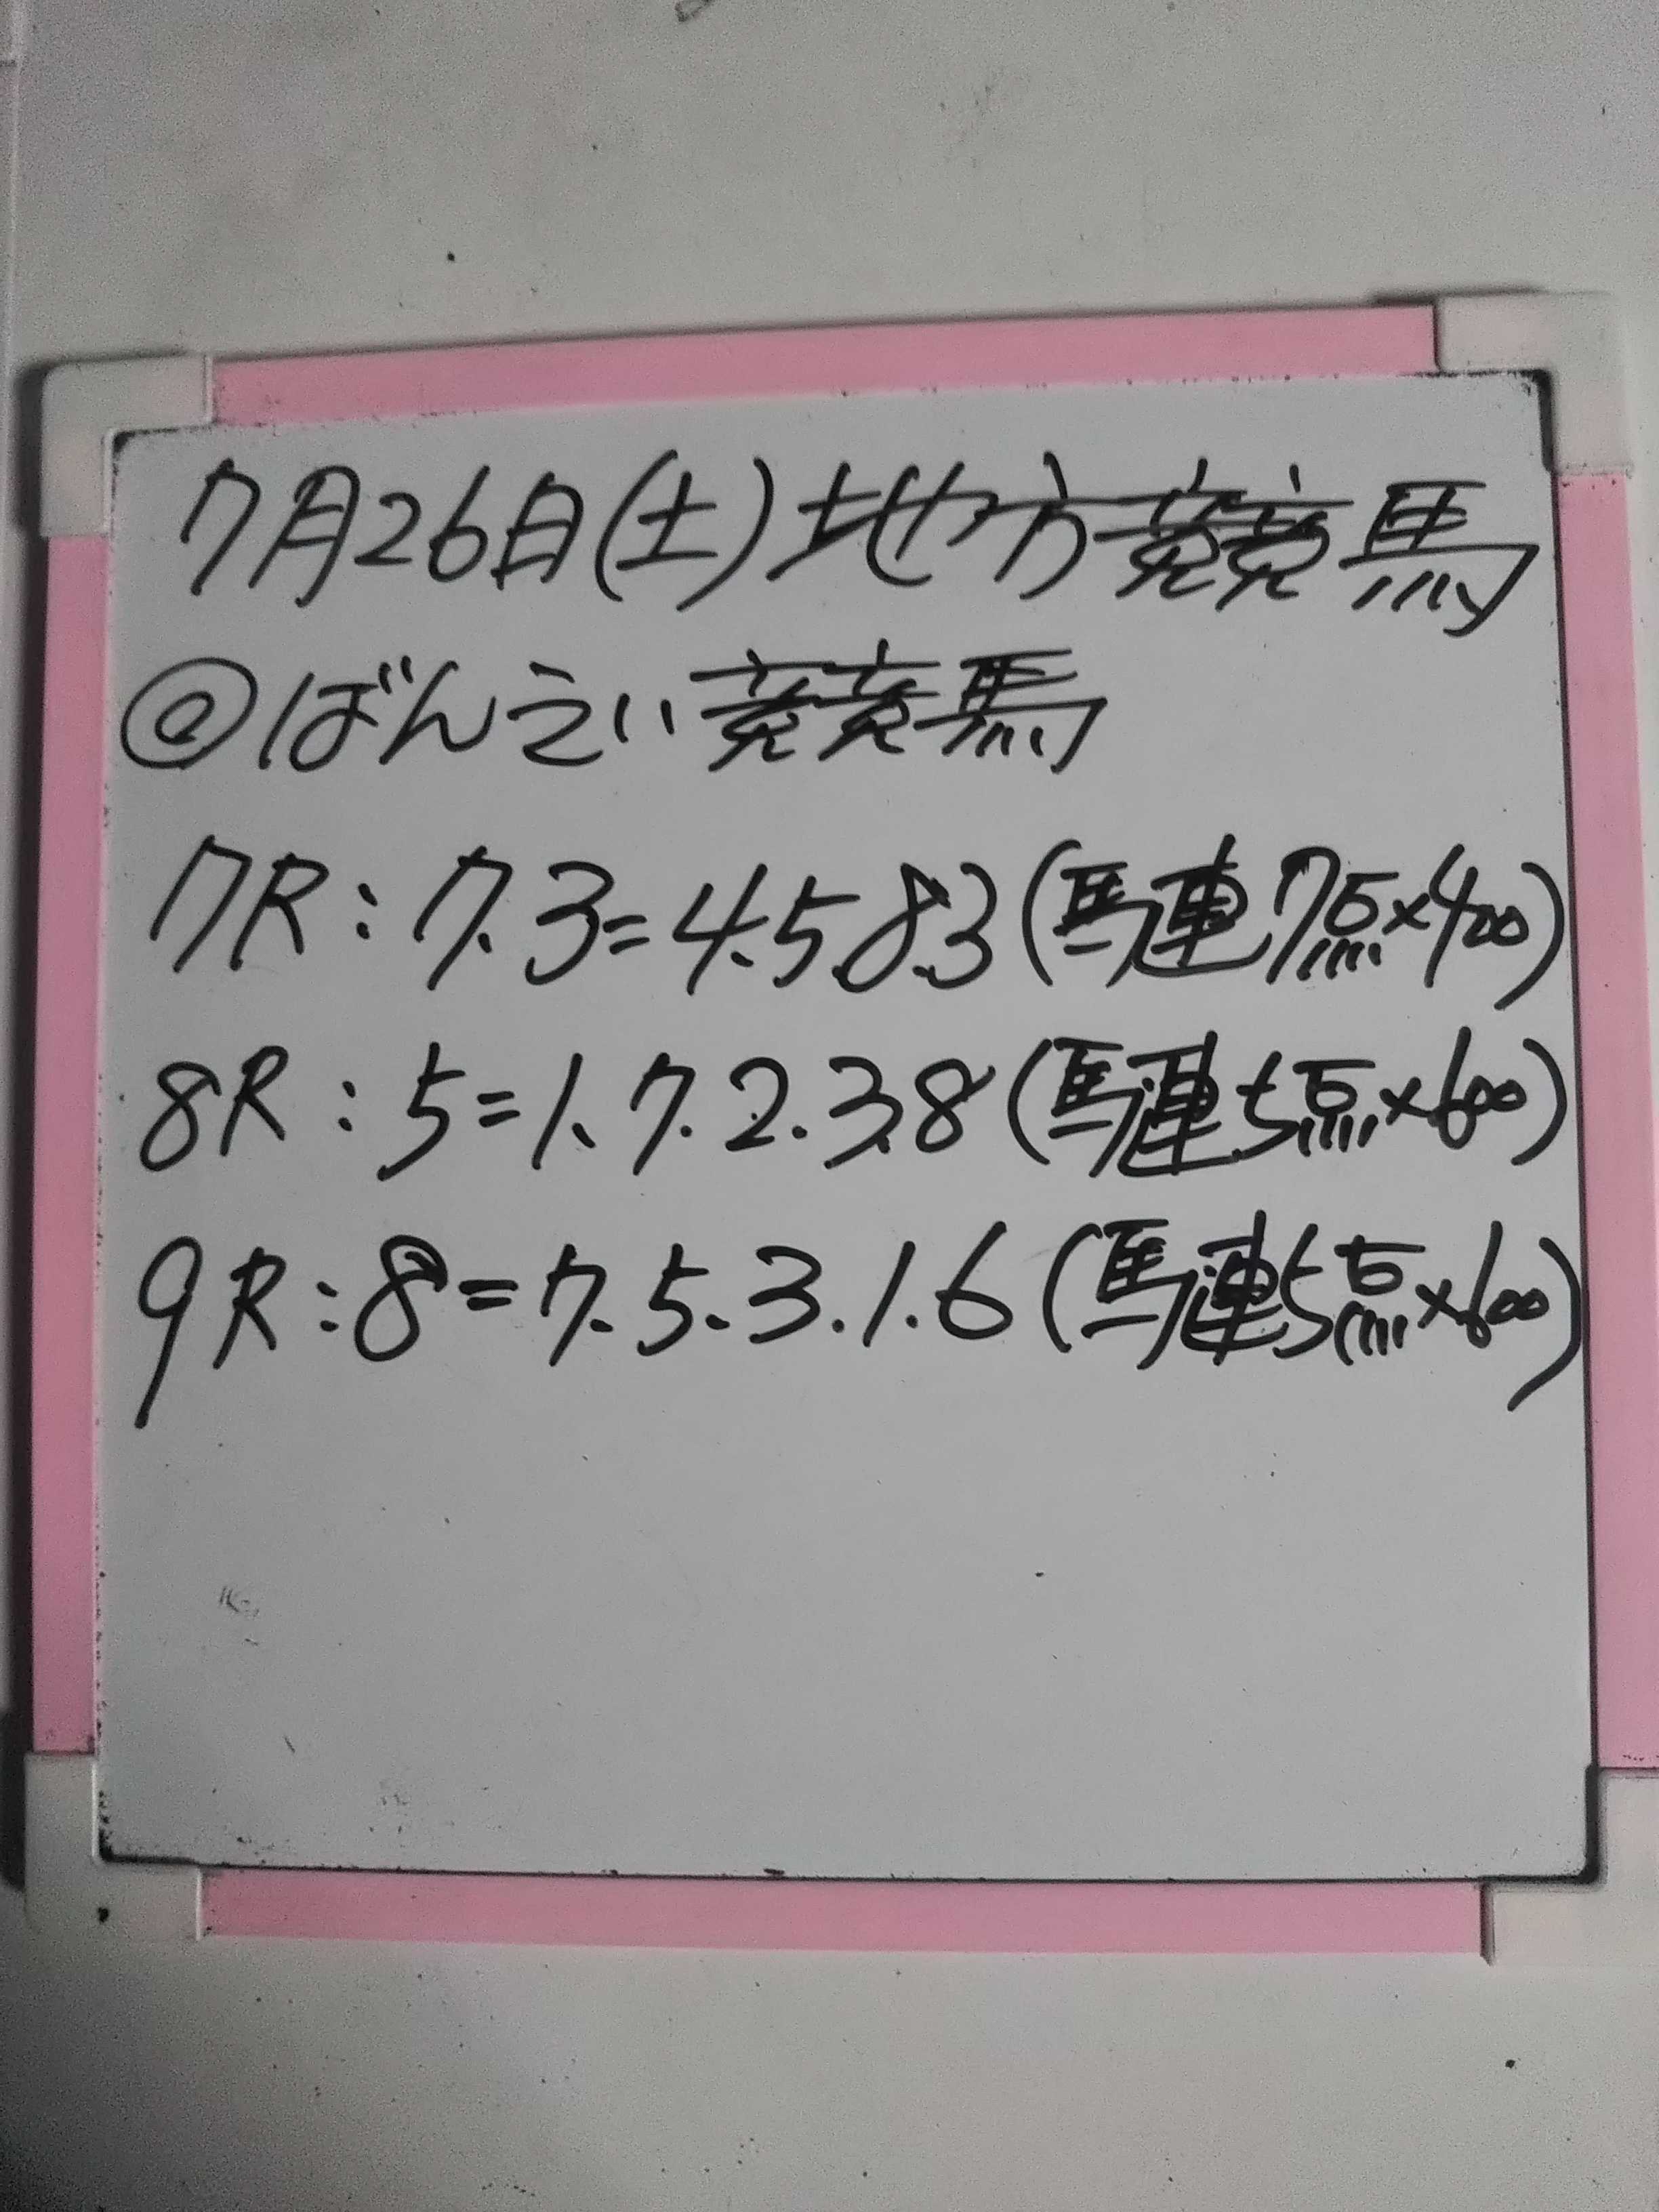 7月26日(土)地方競馬
@ばんえい競馬
7R:7.3=4.5.8.3(馬連7点×400)
8R:5=1.7.2.3.8(馬連5点×600)
9R:8=7.5.3.1.6(馬連5点×600)